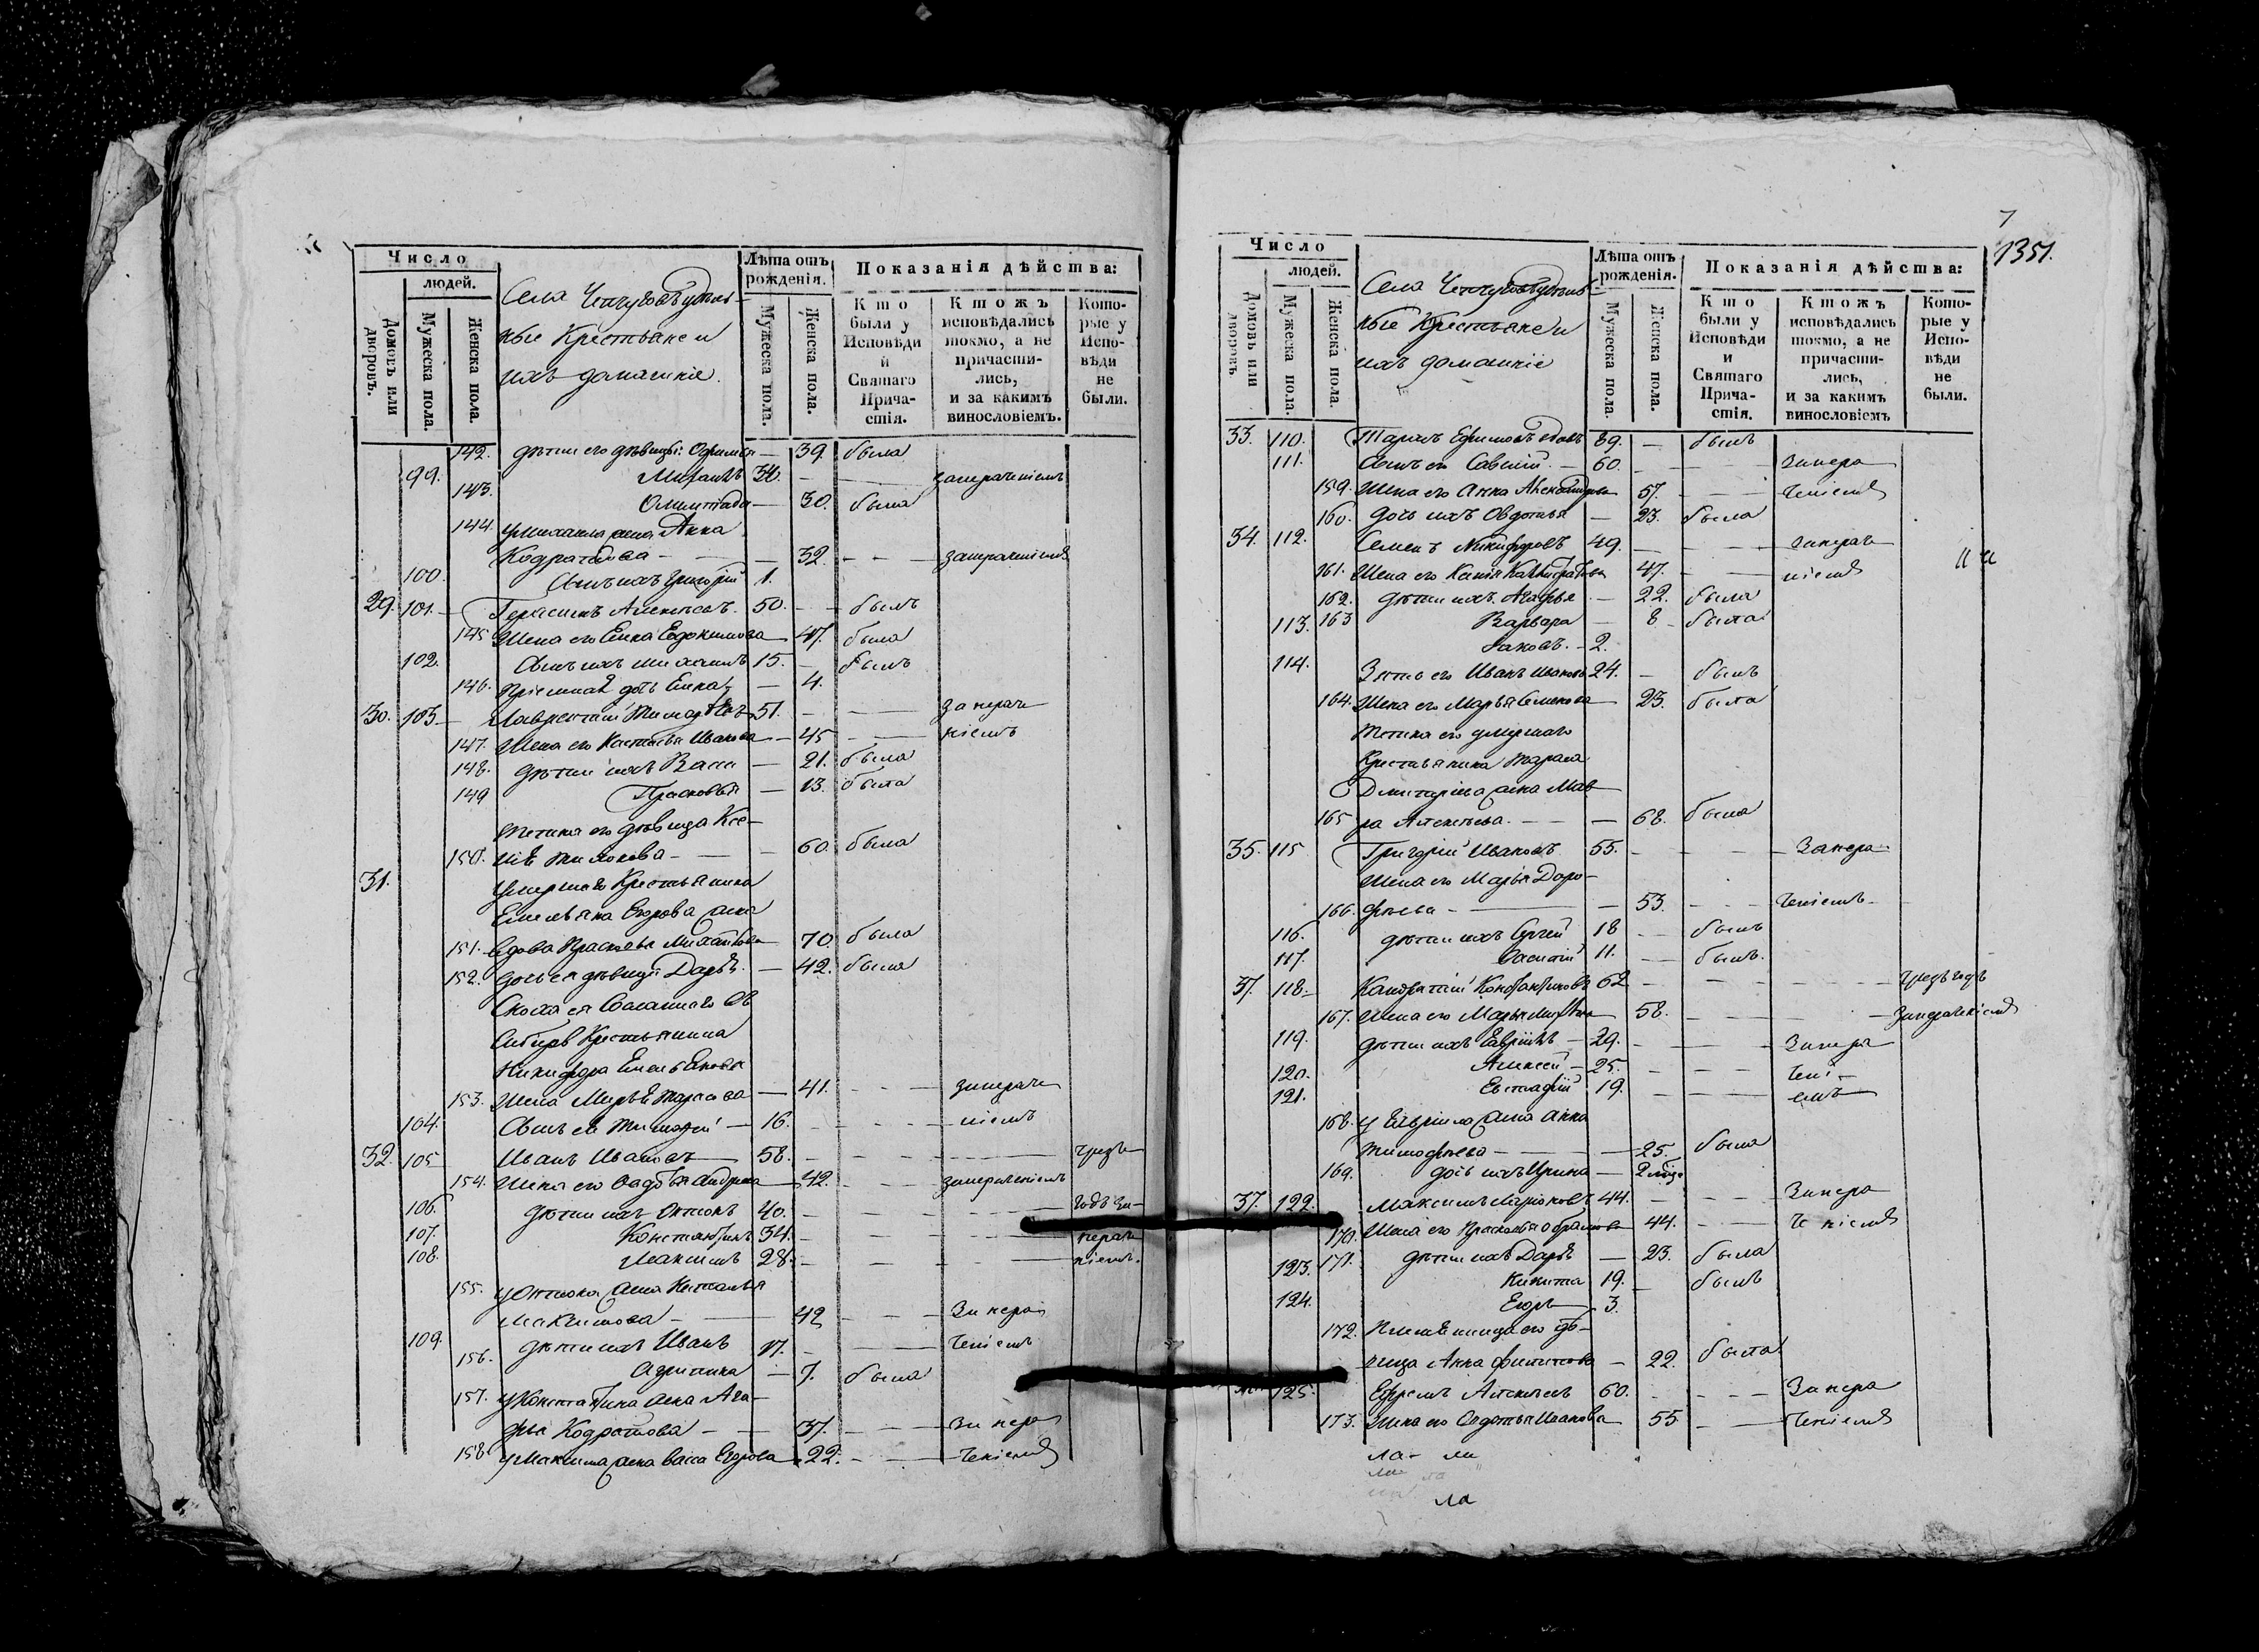 Число
людей.
Домовъ или дворовъ.
Мужеска пола.
Женска пола.
Села удѣль-
ные Крестьяне и
ихъ домашніе.
Лѣта отъ рожденія.
Мужеска пола.
Женска пола.
Показанія дѣйства:
Кто были у Исповѣди и Святаго Причастія.
Ктожъ исповѣдались токмо, а не причастились, и за какимъ винословіемъ.
Которые у Исповѣди не были.
142. дѣти его дѣвицы: — 39. была
99. Михаилъ 36. — запераченіемъ
143. Олимпіада — 30. была
144. у Михаила жена Анна
Кодратова — — 32. — — запераченіемъ
100. Сынъ ихъ Григорій 1.
29. 101. — Герасимъ Алексѣевъ. 50. — — былъ
145 Жена его Елена Евдокимова — 47. была
102. Сынъ ихъ Михаилъ 15. — былъ
146. Пріемная дочь Елена — 4.
30. 103. — Лаврентій 51. — — запераче
147. Жена его Настасья Иванова — 45 — — ніемъ
148. дѣти ихъ Васса — 21. была
149 Прасковья — 13. была
Тетка его дѣвица Ксе-
150. нія — — — 60. была
31. Умершаго Крестьянина
Емельяна Егорова жена
151. вдова Прасковья Михайлова — 70. была
152. дочь ея дѣвица Дарья. — 42. была
Сноха ея Сосланнаго въ
Сибирь Крестьянина
Никифора Емельянова
153. Жена Марья Тарасова — 41. — — запераче
104. Сынъ ея Тимофей — 16. — — — ніемъ
32. 105 Иванъ Ивановъ — 58. — — — чрезъ
154. Жена его Авдотья Андреева — 42. — — запераченіемъ
106. дѣти ихъ Антонъ 40. — — — годъ за-
107. Константинъ 34. — — — пераче
108. Максимъ 28. — — — ніемъ.
155. у Антона жена Наталья
Максимова — — 42 — — Запера
109. дѣти ихъ Иванъ 17. — — ченіемъ
156. Агрипина — 7. была
157. у Константина жена Ага-
фья Кодратова — — 37. — — Запера
158. у Максима жена Васса Егорова — 22. — — ченіемъ
7
1351.
Число
людей.
Домовъ или дворовъ.
Мужеска пола.
Женска пола.
Села удѣль-
ные Крестьяне и
ихъ домашніе
Лѣта отъ рожденія.
Мужеска пола.
Женска пола.
Показанія дѣйства:
Кто были у Исповѣди и Святаго Причастія.
Ктожъ исповѣдались токмо, а не причастились, и за какимъ винословіемъ
Которые у Исповѣди не были.
33. 110. Тарасъ Ефимовъ вдовъ 89. — былъ
111. Сынъ его Савелій. — 60. — — — Запера
159. Жена его Анна Александрова 57. — — ченіемъ
160. дочь ихъ Овдотья — 23. была
34. 112. Семенъ Никифоровъ 49. — — — запераче
161. Жена его Ксенія 47. — — ніемъ
162. дѣти ихъ Агафья — 22. была
113. 163 Варвара — 8 — была
Яковъ. — 2.
114. Зять его Иванъ Ивановъ 24. — былъ
164. Жена его Марья Семенова — 23. была
Тетка его умершаго
Крестьянина Тараса
Дмитріева жена Мав-
165 ра Алексѣева. — — — 68. была
35. 115 Григорій Ивановъ 55. — — — Запера
Жена его Марья Доро-
166. фѣева — — — 53. — — ченіемъ
116. дѣти ихъ Сергей 18 — былъ
117. Василій 11. — былъ.
37. 118. — Кондратій Константиновъ 62 — — — чрезъ годъ
167. Жена его Марья — 58. — — — запераченіемъ
119. дѣти ихъ Гавріилъ — 29. — — — Запера
120. Алексей — 25. — — — чені-
121. Евстафій 19. — — — емъ
168. у Гавріила жена Анна
Тимофеева — — — 25. была
169. дочь ихъ Ирина — 2 мѣся
37. 122. Максимъ Ларіоновъ 44. — — — Запера
170. Жена его Прасковья Абрамова 44. — — ченіемъ
171. дѣти ихъ Дарья — 23. была
123. Никита 19. — былъ
124. Егоръ — 3.
172. Племянница его дѣ-
вица Анна Филипова — 22. была
125. Ефремъ Алексѣевъ 60. — — — Запера
173. Жена его Овдотья Иванова — 55 — — ченіемъ
ла- ли
ла